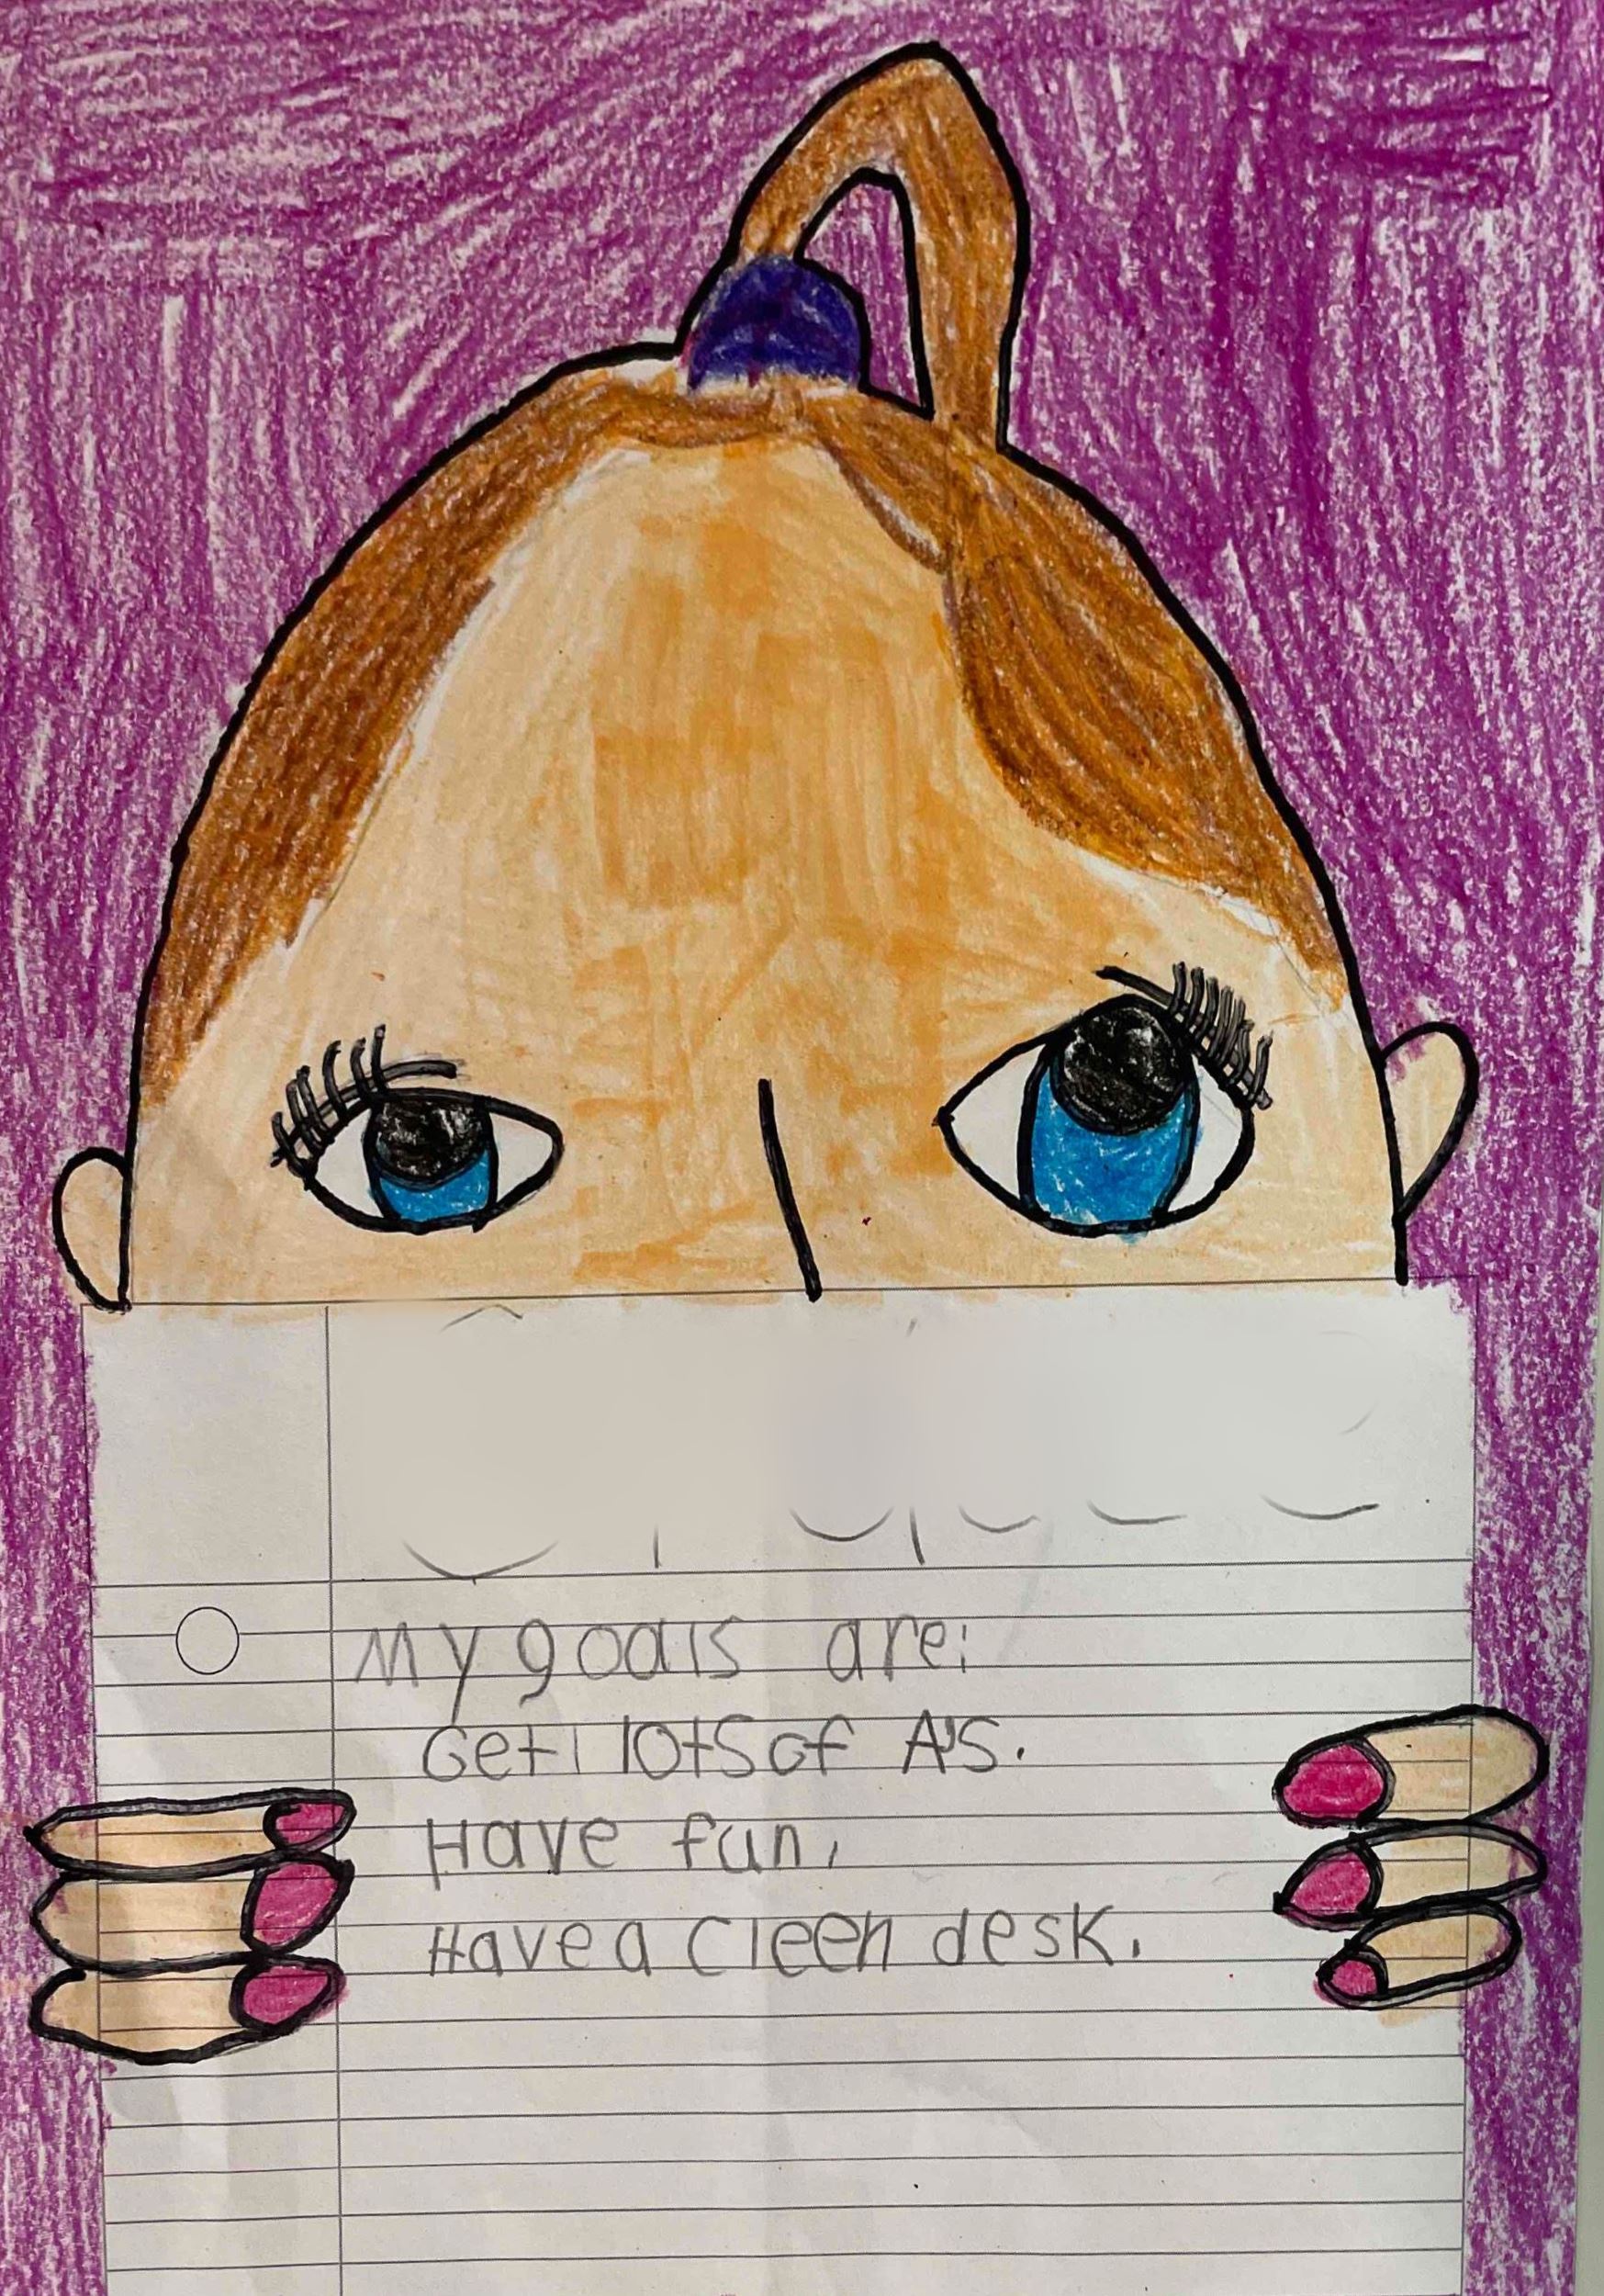 My goals are:
Get lots of A's.
Have fun.
Have a cleen desk.